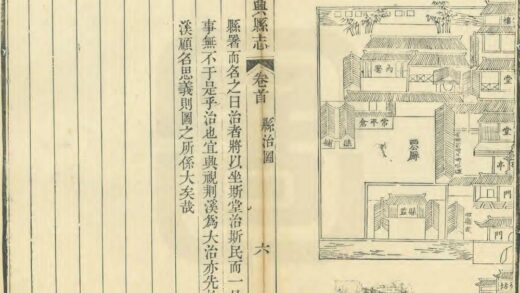 樓
堂
堂
門
門
坊
內署
常平倉
公廨
興縣志
卷首
縣治圖
六
縣署而名之曰治者將以坐斯堂治斯民而一
事無不于是乎治也宜興視荆溪為大治亦先
溪顧名思義則圖之所係大矣哉